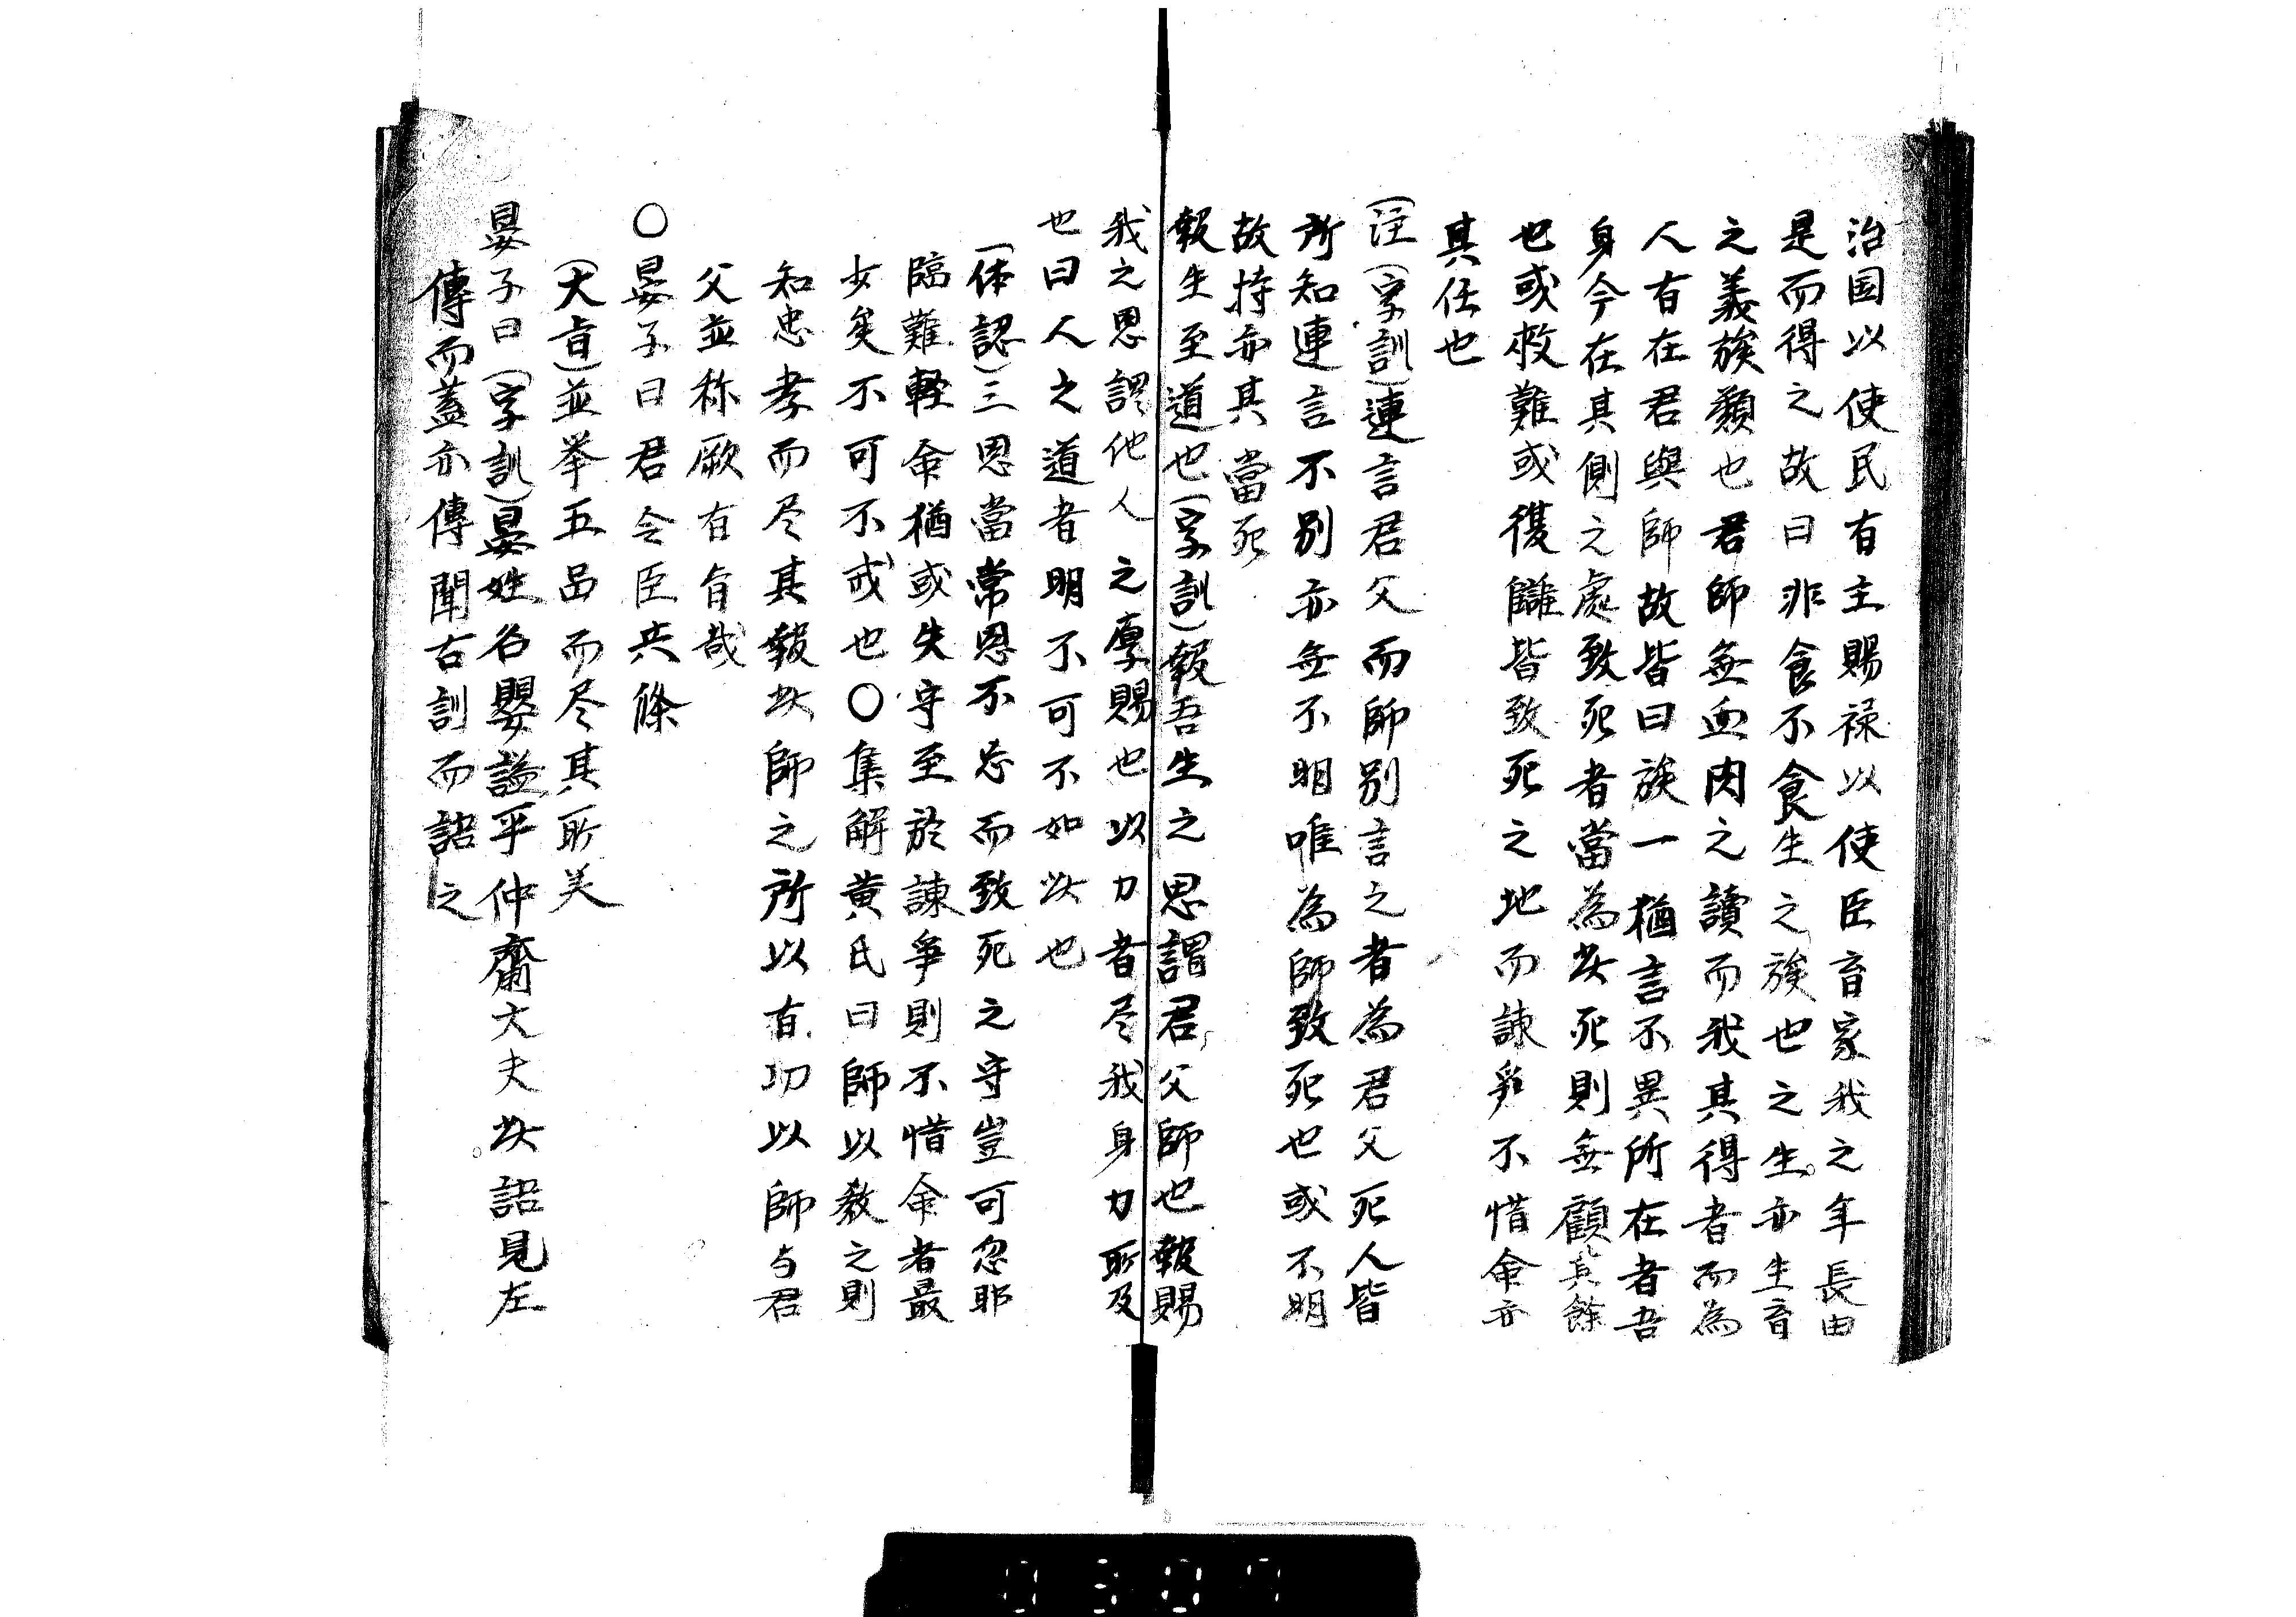 治国以使民有主賜禄以使臣育家我之年長由
是而得之故曰非食不食生之族也之生亦生育
之義族類也君師無血肉之讀而我其得者而為
人有在君與師故皆曰族一猶言不異所在者吾
身今在其側之處致死者當為此死則無顧其餘
也或救難或復讎皆致死之地而諫爭不惜命亦
其任也
(注)(字訓)連言君父而師別言之者為君父死人皆
所知連言不別亦無不明唯為師致死也或不明
故持亦其當死
報生至道也(字訓)報吾生之恩謂君父師也報賜
我之恩謂他人之厚賜也以力者尽我身力所及
也曰人之道者明不可不如此也
(体認)三恩當常恩不忘而致死之守豈可忽耶
臨難軽命猶或失守至於諫爭則不惜命者最
少矣不可不戒也〇集解黄氏曰師以教之則
知忠孝而尽其報此師之所以有功以師与君
父並称厥有旨哉
〇晏子曰君令臣共條
(大旨)並举五品而尽其所美
晏子曰(字訓)晏姓名嬰謚平仲齊大夫此語見左
傳而蓋亦傳聞古訓而語之